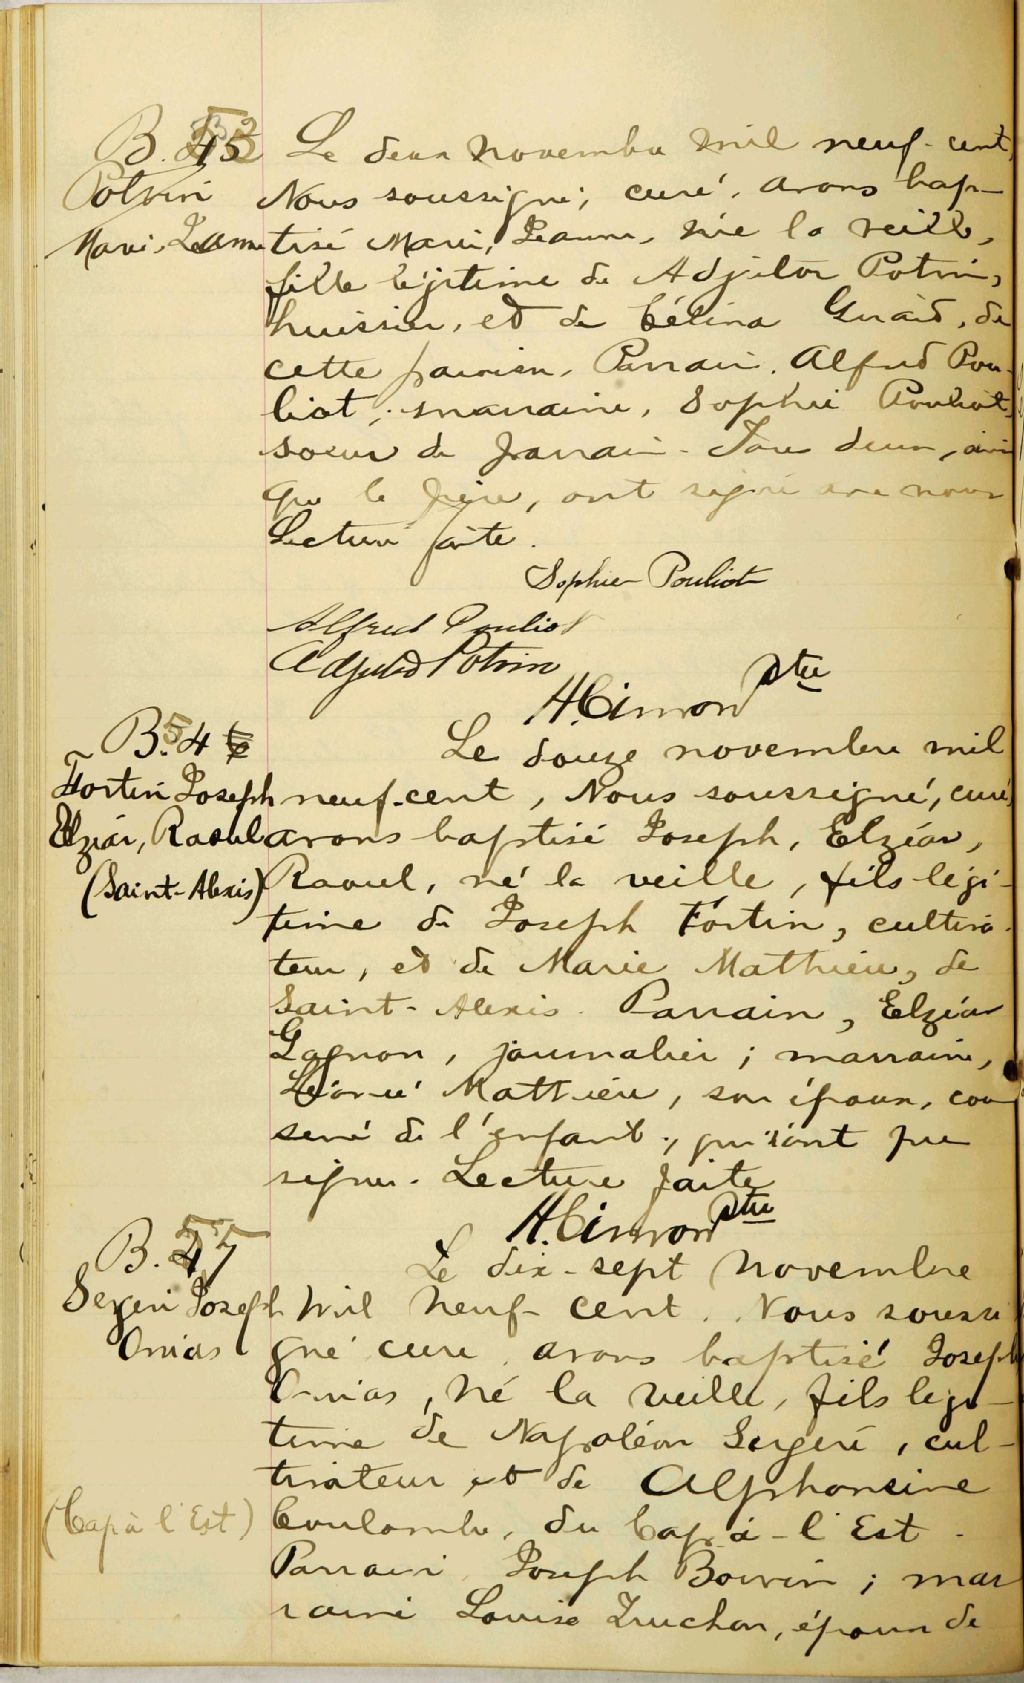 B. 53
Potvin
Marie, Jeanne
Le deux novembre mil neuf-cent,
Nous soussigné, curé, avons bap-
tisé Marie, Jeanne, née la veille,
fille légitime de Adjutor Potvin,
huissier, et de Célina Guaid, de
cette paroisse, Parrain, Alfred Pou-
liot; marraine, Sophie Pouliot,
soeur du parrain. Tous deux, ainsi
que le père, ont signé avec nous
Lecture faite.
Sophie Pouliot
Alfred Pouliot
Adjutor Potvin
H. Cimon Ptre
B. 54
Fortin Joseph
Elzéar, Raoul
(Saint-Alexis)
Le douze novembre mil
neuf-cent, Nous soussigné, curé,
avons baptisé Joseph, Elzéar,
Raoul, né la veille, fils légi-
time de Joseph Fortin, cultiva-
teur, et de Marie Mathieu, de
Saint-Alexis. Parrain, Elzéar
Gagnon, journalier; marraine,
Mathieu, son épouse, cou-
sine de l'enfant; qui n'ont pu
signer. Lecture faite
H. Cimon Ptre
B. 55
Joseph
Onias
(Cap à l'Est)
Le dix-sept novembre
mil neuf-cent. Nous soussi
gné curé, avons baptisé Joseph
Onias, né la veille, fils légi-
time de Napoléon, cul-
tivateur et de Alphonsine
Coulombe, du Cap-à-l'Est.
Parrain Joseph Boivin; mar
raine Louise Truchon, épouse de